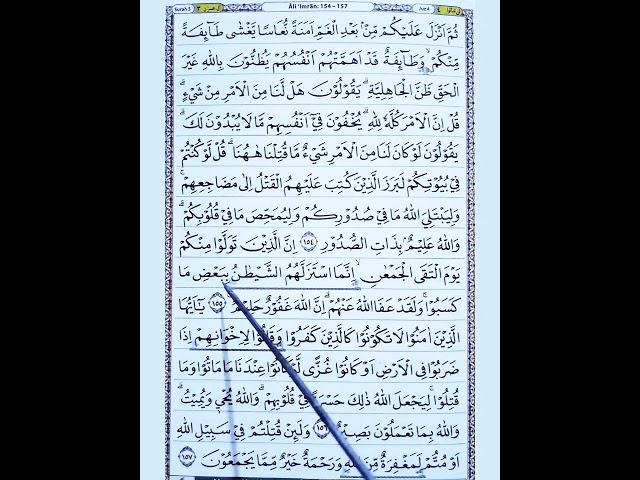 Surah 3
Āli 'Imrān: 154 – 157
Juz 4
ثُمَّ اَنْزَلَ عَلَيْكُمْ مِّنْۢ بَعْدِ الْغَمِّ اَمَنَةً نُّعَاسًا يَّغْشٰى طَاۤىِٕفَةً
مِّنْكُمْۙ وَطَاۤىِٕفَةٌ قَدْ اَهَمَّتْهُمْ اَنْفُسُهُمْ يَظُنُّوْنَ بِاللّٰهِ غَيْرَ
الْحَقِّ ظَنَّ الْجَاهِلِيَّةِۗ يَقُوْلُوْنَ هَلْ لَّنَا مِنَ الْاَمْرِ مِنْ شَيْءٍۗ
قُلْ اِنَّ الْاَمْرَ كُلَّهٗ لِلّٰهِۗ يُخْفُوْنَ فِيْٓ اَنْفُسِهِمْ مَّا لَا يُبْدُوْنَ لَكَۗ
يَقُوْلُوْنَ لَوْ كَانَ لَنَا مِنَ الْاَمْرِ شَيْءٌ مَّا قُتِلْنَا هٰهُنَاۗ قُلْ لَّوْ كُنْتُمْ
فِيْ بُيُوْتِكُمْ لَبَرَزَ الَّذِيْنَ كُتِبَ عَلَيْهِمُ الْقَتْلُ اِلٰى مَضَاجِعِهِمْۚ
وَلِيَبْتَلِيَ اللّٰهُ مَا فِيْ صُدُوْرِكُمْ وَلِيُمَحِّصَ مَا فِيْ قُلُوْبِكُمْۗ
وَاللّٰهُ عَلِيْمٌۢ بِذَاتِ الصُّدُوْرِ ١٥٤ اِنَّ الَّذِيْنَ تَوَلَّوْا مِنْكُمْ
يَوْمَ الْتَقَى الْجَمْعٰنِۙ اِنَّمَا اسْتَزَلَّهُمُ الشَّيْطٰنُ بِبَعْضِ مَا
كَسَبُوْاۚ وَلَقَدْ عَفَا اللّٰهُ عَنْهُمْۗ اِنَّ اللّٰهَ غَفُوْرٌ حَلِيْمٌ ١٥٥ يٰٓاَيُّهَا
الَّذِيْنَ اٰمَنُوْا لَا تَكُوْنُوْا كَالَّذِيْنَ كَفَرُوْا وَقَالُوْا لِاِخْوَانِهِمْ اِذَا
ضَرَبُوْا فِى الْاَرْضِ اَوْ كَانُوْا غُزًّى لَّوْ كَانُوْا عِنْدَنَا مَا مَاتُوْا وَمَا
قُتِلُوْاۚ لِيَجْعَلَ اللّٰهُ ذٰلِكَ حَسْرَةً فِيْ قُلُوْبِهِمْۗ وَاللّٰهُ يُحْيٖ وَيُمِيْتُۗ
وَاللّٰهُ بِمَا تَعْمَلُوْنَ بَصِيْرٌ ١٥٦ وَلَىِٕنْ قُتِلْتُمْ فِيْ سَبِيْلِ اللّٰهِ
اَوْ مُتُّمْ لَمَغْفِرَةٌ مِّنَ اللّٰهِ وَرَحْمَةٌ خَيْرٌ مِّمَّا يَجْمَعُوْنَ ١٥٧